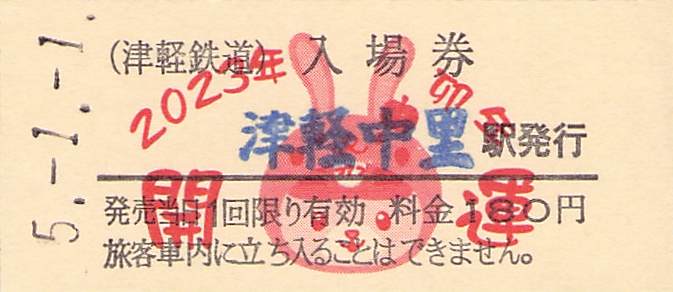 5.-1.-1.
(津軽鉄道) 入場券
2023年 卯年
津軽中里駅発行
開運
発売当日1回限り有効 料金180円
旅客車内に立ち入ることはできません。